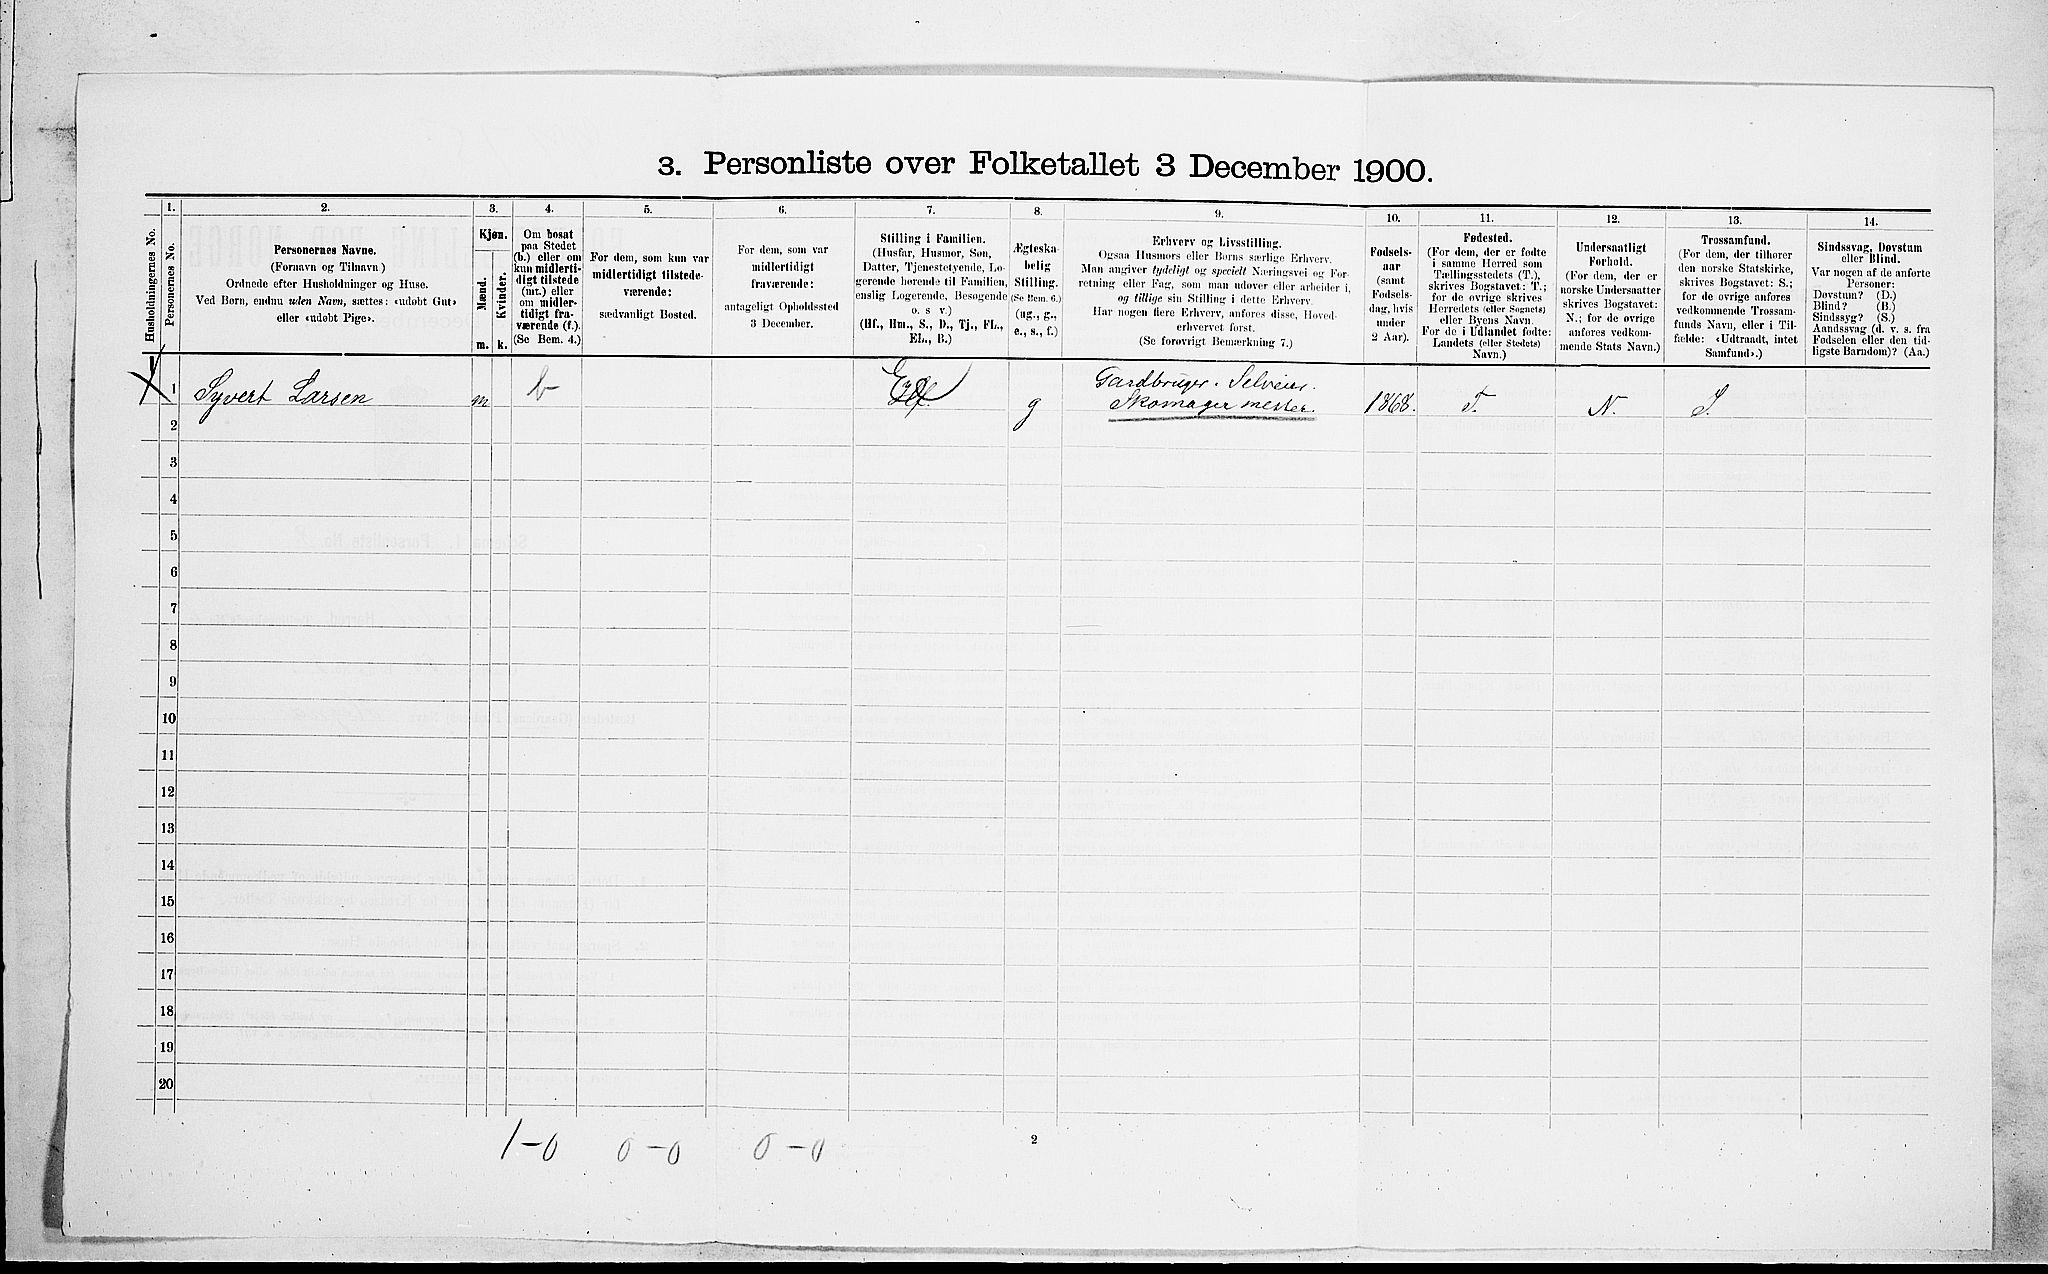 3. Personliste over Folketallet 3 December 1900.
Husholdningernes No.
1.
Personernes No.
2.
Personernes Navne.
(Fornavn og Tilnavn)
Ordnede efter Husholdninger og Huse.
Ved Børn, endnu uden Navn, sættes: «udøbt Gut»
eller «udøbt Pige».
3.
Kjøn.
Mænd.
Kvinder.
m.
k.
4.
Om bosat
paa Stedet
(b.) eller om
kun midlerti-
digt tilstede
(mt.) eller
om midler-
tidigt fra-
værende (f.).
(Se Bem. 4.)
5.
For dem, som kun var
midlertidigt tilstede-
værende:
sædvanligt Bosted.
6.
For dem, som var
midlertidigt
fraværende:
antageligt Opholdssted
3 December.
7.
Stilling i Familien.
(Husfar, Husmor, Søn,
Datter, Tjenestetyende, Lo-
gerende hørende til Familien,
enslig Logerende, Besøgende
o. s v.)
(Hf., Hm., S., D., Tj., FL.,
EL., B.)
8.
Ægteska-
belig
Stilling.
(Se Bem. 6.)
(ug., g.,
e., s., f.)
9.
Erhverv og Livsstilling.
Ogsaa Husmors eller Børns særlige Erhverv.
Man angiver tydeligt og specielt Næringsvei og For-
retning eller Fag, som man udøver eller arbeider i,
og tillige sin Stilling i dette Erhverv.
Har nogen flere Erhverv, anføres disse, Hoved-
erhvervet først.
(Se forøvrigt Bemærkning 7.)
10.
Fødsels-
aar
(samt
Fødsels-
dag, hvis
under
2 Aar).
11.
Fødested.
(For dem, der er fødte
i samme Herred som
Tællingsstedets (T.),
skrives Bogstavet: T.;
for de øvrige skrives
Herredets (eller Sognets)
eller Byens Navn.
For de i Udlandet fødte:
Landets (eller Stedets)
Navn.)
12.
Undersaatligt
Forhold.
(For dem, der er
norske Undersaatter
skrives Bogstavet:
N.; for de øvrige
anføres vedkom-
mende Stats Navn.)
13.
Trossamfund.
(For dem, der tilhører
den norske Statskirke,
skrives Bogstavet: S.;
for de øvrige anføres
vedkommende Trossam-
funds Navn, eller i Til-
fælde: «Udtraadt, intet
Samfund».)
14.
Sindssvag, Døvstum
eller Blind.
Var nogen af de anførte
Personer:
Døvstum? (D.)
Blind? (B.)
Sindssyg? (S.)
Aandssvag (d. v. s. fra
Fødselen eller den tid-
ligste Barndom)? (Aa.)
1 Syvert Larsen m b g Gardbruger. Selveier. Skomager mester. 1868. T. N. S.
2
3
4
5
6
7
8
9
10
11
12
13
14
15
16
17
18
19
20
1-0 0-0 0-0
2